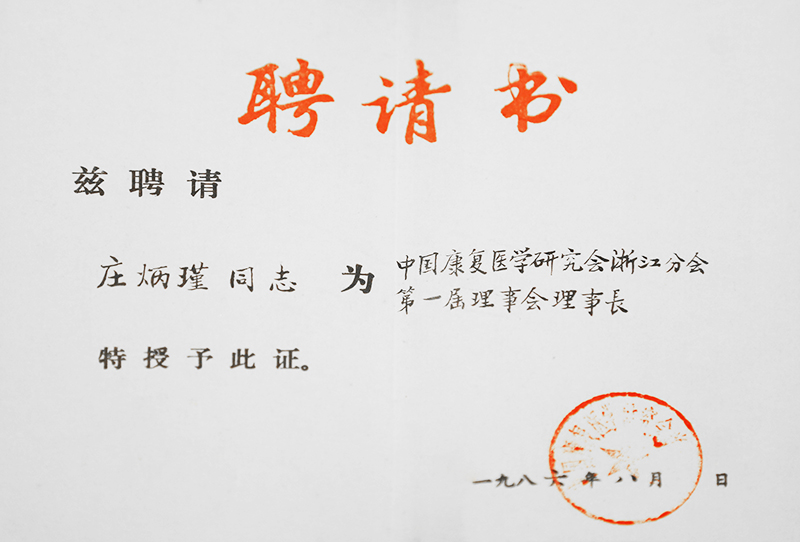 聘请书
兹聘请
庄炳瑾同志 为 中国康复医学研究会浙江分会
第一届理事会理事長
特授予此证。
一九八六年八月 日